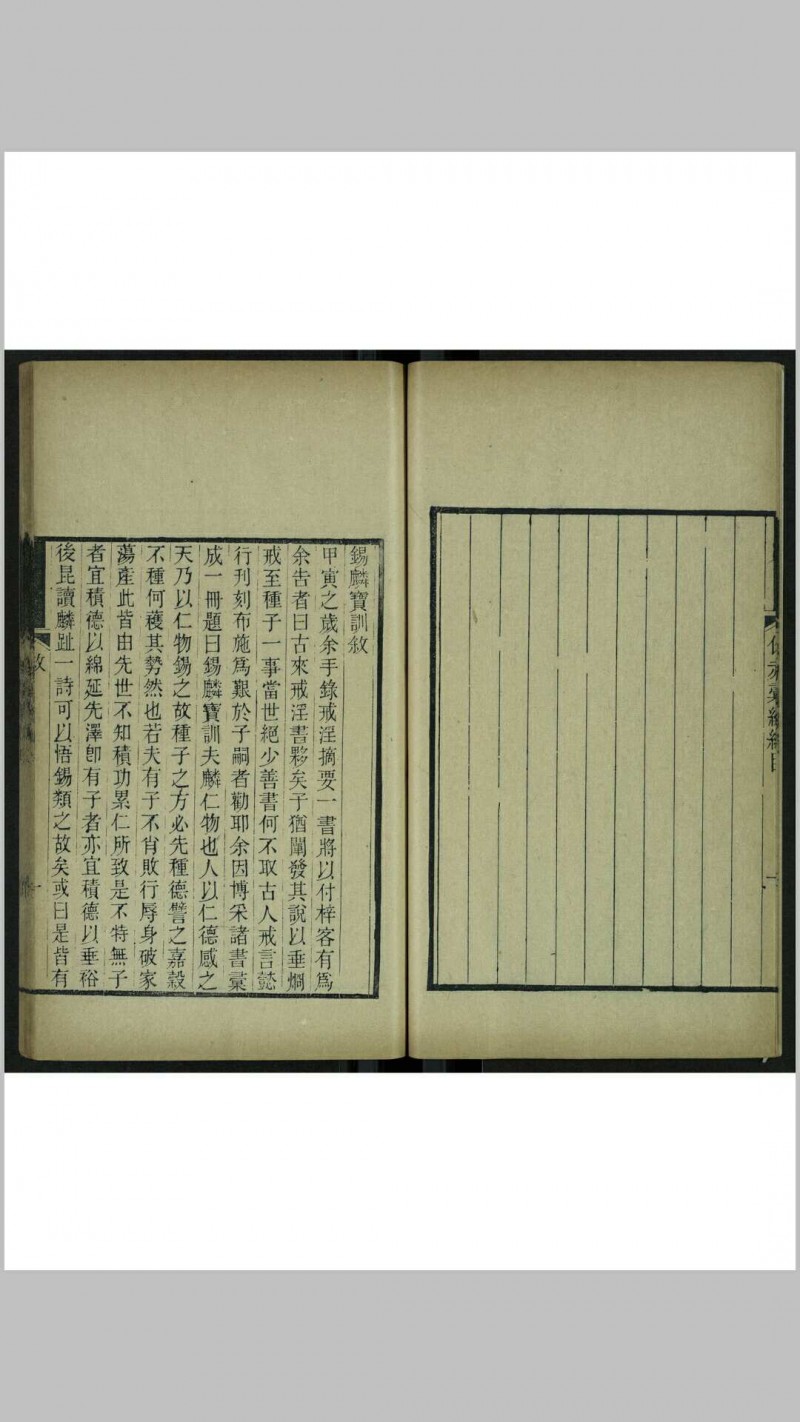 錫麟寶訓敘
甲寅之歲余手錄戒淫摘要一書將以付梓客有爲
余告者曰古來戒淫書夥矣子猶闡發其說以垂烱
戒至種子一事當世絕少善書何不取古人戒言懿
行刊刻布施爲艱於子嗣者勸耶余因博采諸書彚
成一冊題曰錫麟寶訓夫麟仁物也人以仁德感之
天乃以仁物錫之故種子之方必先種德譬之嘉穀
不種何穫其勢然也若夫有子不肖敗行辱身破家
蕩產此皆由先世不知積功累仁所致是不特無子
者宜積德以綿延先澤卽有子者亦宜積德以垂裕
後昆讀麟趾一詩可以悟錫類之故矣或曰是皆有
敘
一